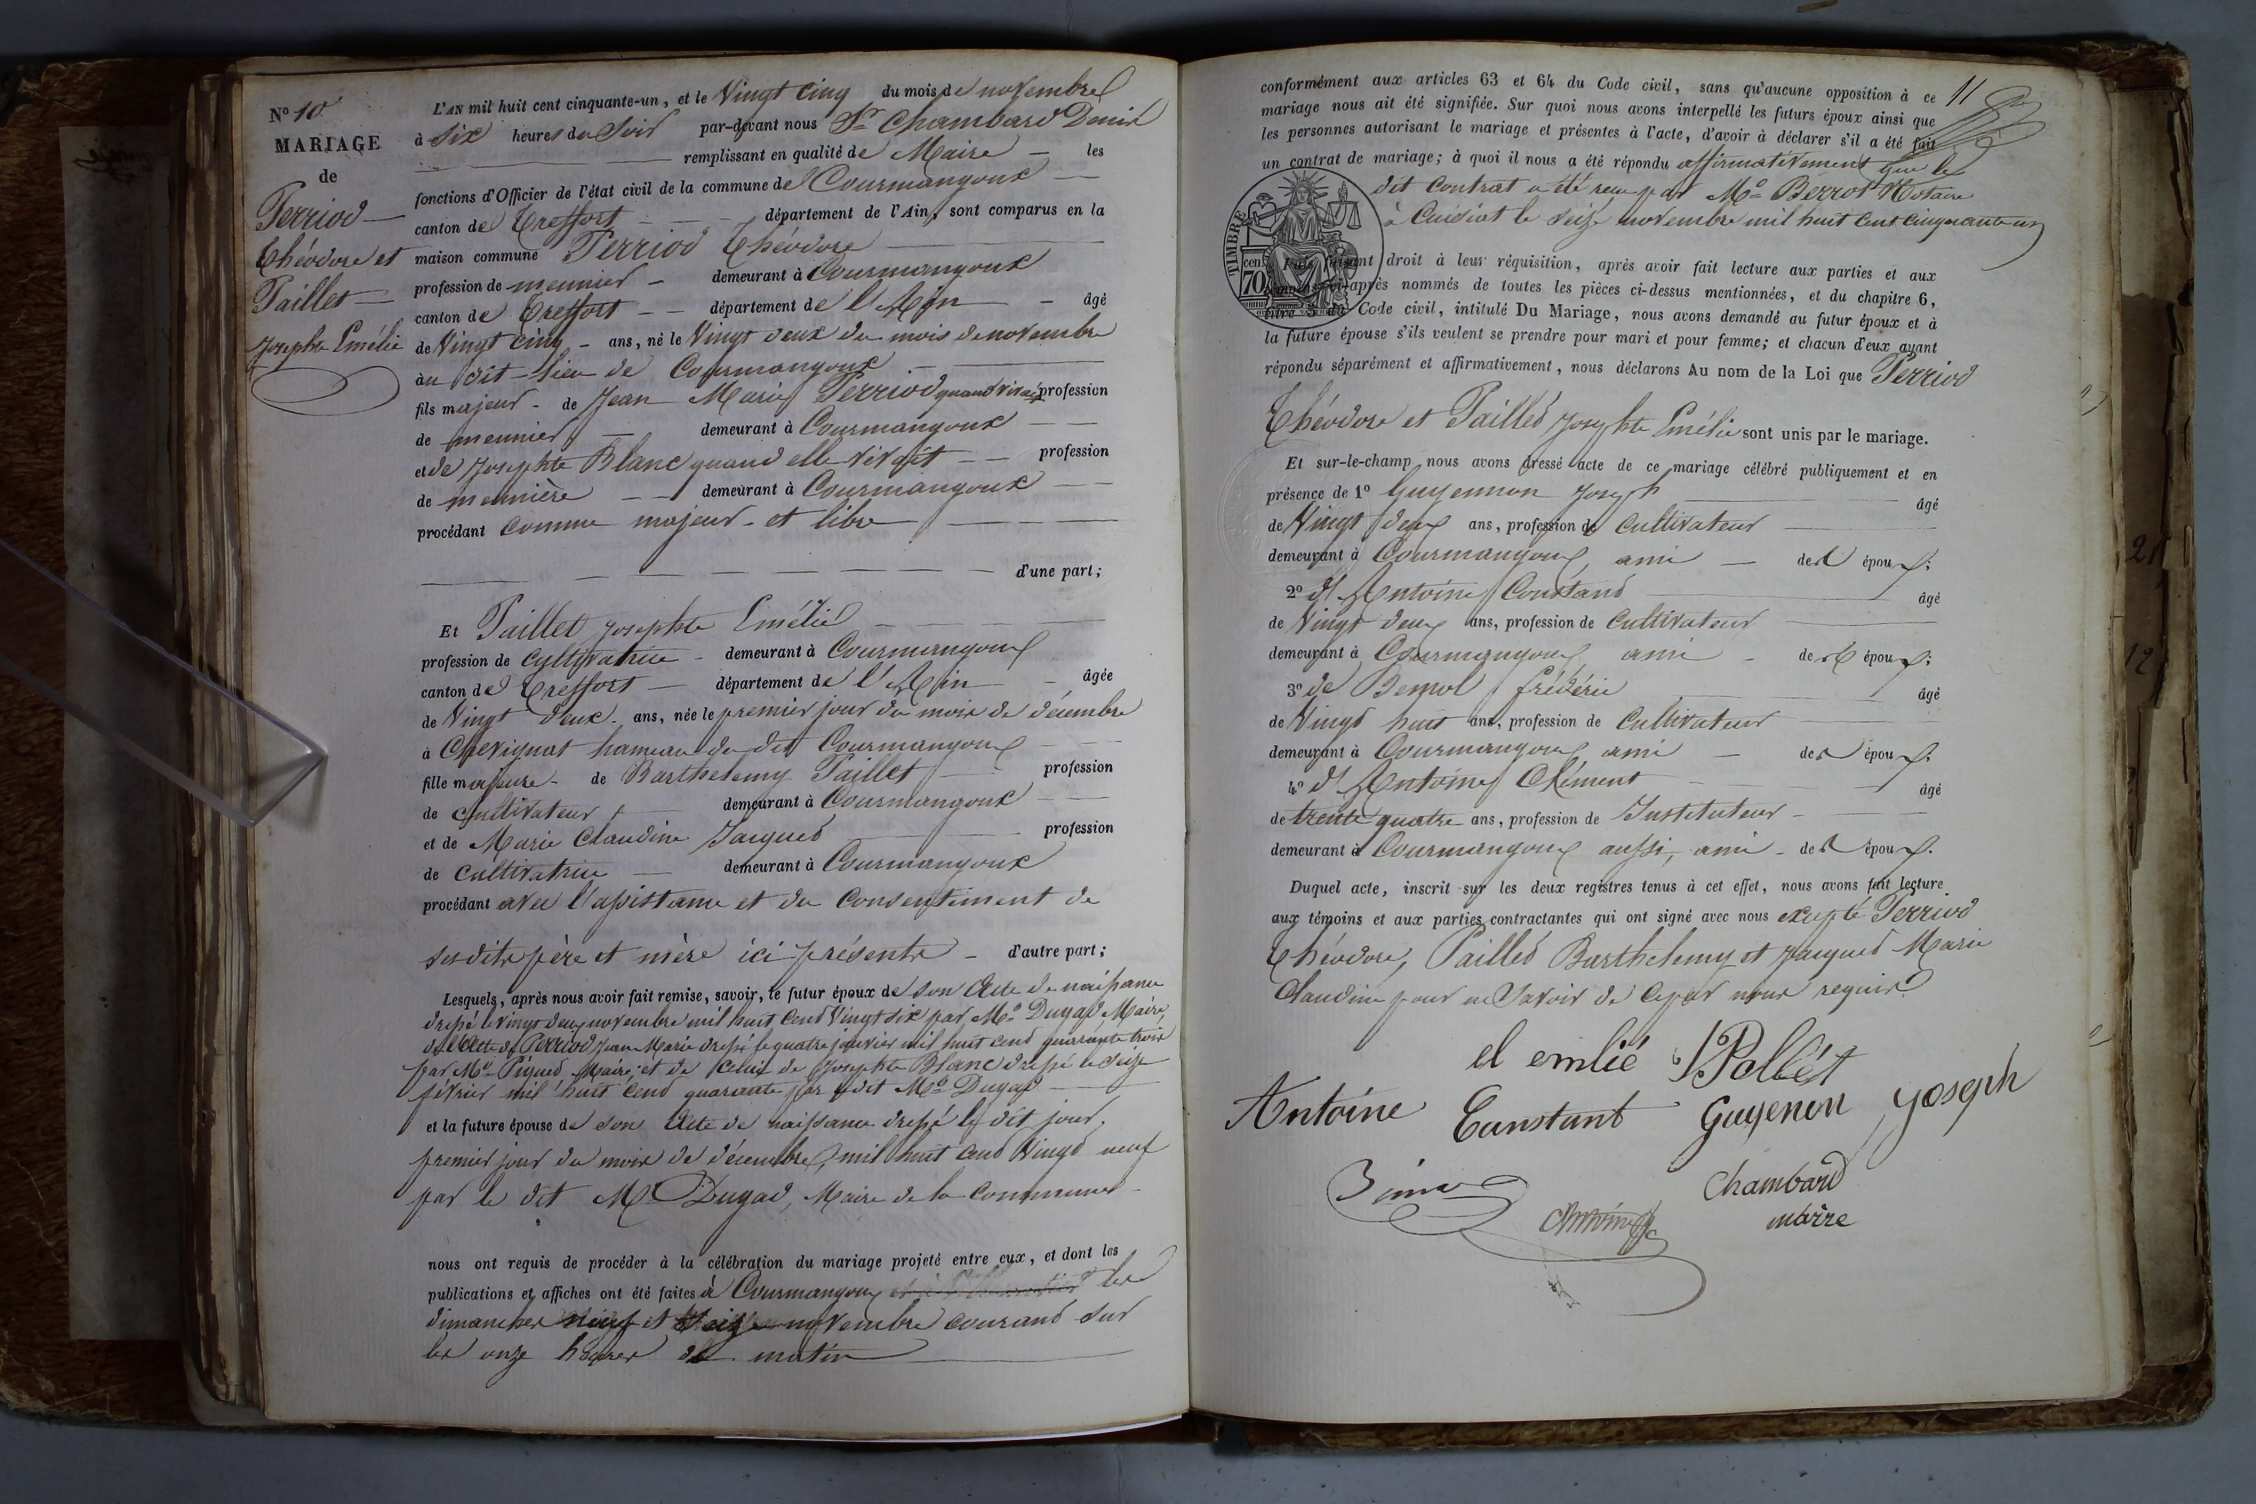 N° 10
MARIAGE
de
Perriod
Théodore et
Paillet
Josephte Emélie
L'AN mil huit cent cinquante-un, et le Vingt cinq du mois de novembre
à six heures du Soir par-devant nous Sr Chambard Denis
remplissant en qualité de Maire les
fonctions d'Officier de l'état civil de la commune de Courmangoux
canton de Treffort département de l'Ain, sont comparus en la
maison commune Perriod Théodore
profession de meunier demeurant à Courmangoux
canton de Treffort département de l'Ain âgé
de Vingt cinq ans, né le Vingt deux du mois de novembre
au dit lieu de Courmangoux
fils majeur de Jean Marie Perriod quand vivait profession
de meunier demeurant à Courmangoux
et de Josephte Blanc quand elle vivait profession
de meunière demeurant à Courmangoux
procédant comme majeur et libre
d'une part;
Et Paillet Josephte Emélie
profession de cultivatrice demeurant à Courmangoux
canton de Treffort département de l'Ain âgée
de Vingt deux ans, née le premier jour du mois de décembre
à Chevignat hameau du dit Courmangoux
fille majeure de Barthelemy Paillet profession
de cultivateur demeurant à Courmangoux
et de Marie Claudine Jacques profession
de cultivatrice demeurant à Courmangoux
procédant avec l'assistance et du consentement de
ses dits père et mère ici présents d'autre part;
Lesquels, après nous avoir fait remise, savoir, le futur époux de son Acte de naissance
dressé le vingt deux novembre mil huit cend Vingt six par Mr Dugad Maire,
de l'Acte de Perriod Jean Marie dressé le quatre janvier mil huit cend quarante trois
par Mr Piqued Maire; et de celui de Josephte Blanc dressé le seize
février mil huit cend quarante par dit Mr Dugad
et la future épouse de son Acte de naissance dressé le dit jour,
premier jour du mois de décembre, mil huit cend Vingd neuf
par le dit Mr Dugad, Maire de la Commune
nous ont requis de procéder à la célébration du mariage projeté entre eux, et dont les
publications et affiches ont été faites à Courmangoux les
dimanches neuf et seize novembre courand sur
les onze heures du matin
11
conformément aux articles 63 et 64 du Code civil, sans qu'aucune opposition à ce
mariage nous ait été signifiée. Sur quoi nous avons interpellé les futurs époux ainsi que
les personnes autorisant le mariage et présentes à l'acte, d'avoir à déclarer s'il a été fait
un contrat de mariage; à quoi il nous a été répondu affirmativement que le
dit contrat a été reçu par Me Berrot Notaire
à Cuisiat le seize novembre mil huit cent cinquante un
TIMBRE
cen
70
droit à leur réquisition, après avoir fait lecture aux parties et aux
ci-après nommés de toutes les pièces ci-dessus mentionnées, et du chapitre 6,
titre 5 du Code civil, intitulé Du Mariage, nous avons demandé au futur époux et à
la future épouse s'ils veulent se prendre pour mari et pour femme; et chacun d'eux ayant
répondu séparément et affirmativement, nous déclarons Au nom de la Loi que Perriod
Théodore et Pailled Josephte Emélie sont unis par le mariage.
Et sur-le-champ nous avons dressé acte de ce mariage célébré publiquement et en
présence de 1° Guyennon Joseph
âgé
de Vingt deux ans, profession de Cultivateur
demeurant à Courmangoux, ami de l'époux;
2° d'Antoine Constand
âgé
de Vingt deux ans, profession de Cultivateur
demeurant à Courmangoux ami de l'époux;
3° de Frédéric
âgé
de Vingd huit ans, profession de Cultivateur
demeurant à Courmangoux ami de l'époux;
4° d'Antoine Clément
âgé
de trente quatre ans, profession de Instituteur
demeurant à Courmangoux aussi, ami de l'époux.
Duquel acte, inscrit sur les deux registres tenus à cet effet, nous avons fait lecture
aux témoins et aux parties contractantes qui ont signé avec nous excepté Perriod
Théodore, Pailled Barthelemy et Jacqued Marie
Claudine pour ne Savoir de ce par nous requis
el emlié Pallét
Antoine Constant Guyenon Joseph
Chambard
maire